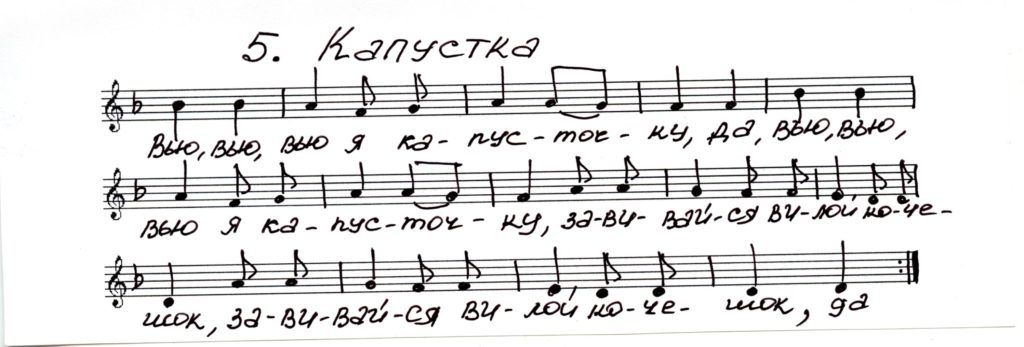 5. Капустка
Вью, вью, вью я ка- пус- точ- ку, да, вью, вью,
вью я ка- пус- точ- ку, за-ви- вай-ся ви- лой, ко-че-
шок, за-ви-вай-ся ви- лой, ко-че- шок, да